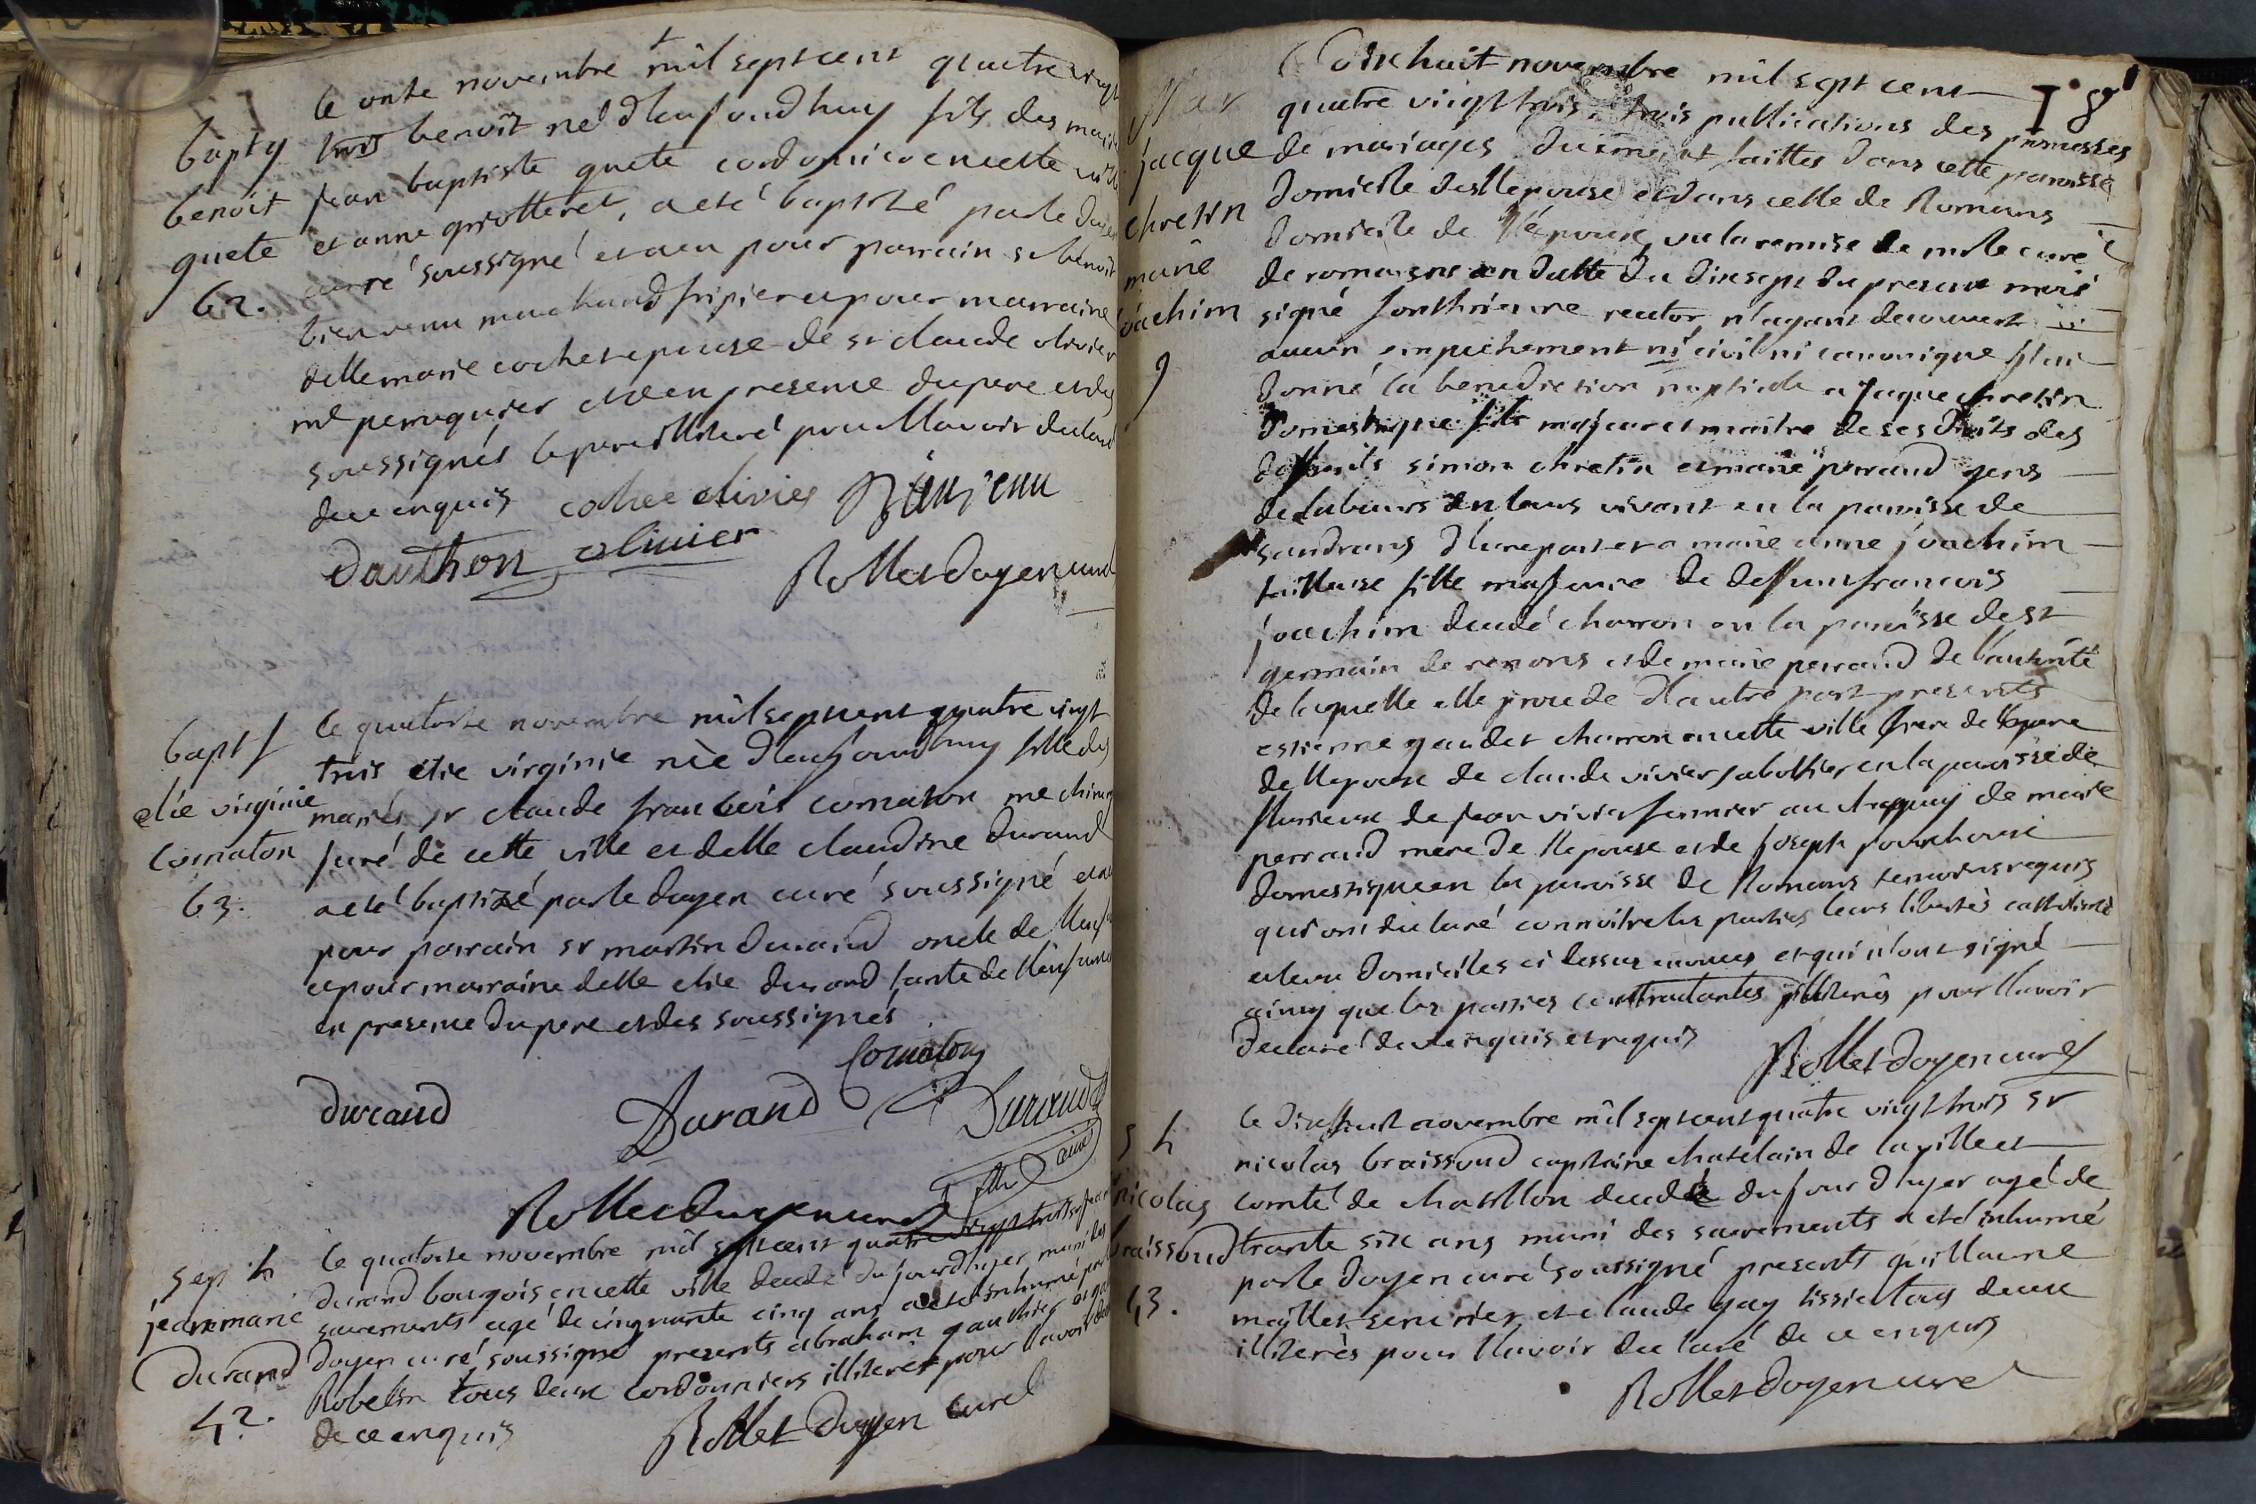 le onze novembre mil sept cent quatre vingt
Bapt trois benoit né d'aujourdhuy fils des mariés
benoit jean baptiste quete cordonnier en cette ville
quete et anne griotteret, a eté baptizé par le doyen
curé soussigné et a eu pour parrain sr benoit
62.
bienvenu marchand fripier et pour marraine
delle marie cochet epouse de sr claude olivier
me perruquier et en presence du pere et des
soussignés le pere illiteré pour l'avoir declaré
de ce enquis cochet olivier
Dauthon olivier
Rollet doyen curé
le quatorze novembre mil sept cent quatre vingt
Bapt
trois elie virginie née d'aujourdhuy fille des
elie virginie
mariés sr claude francois comaton me chirurg
comaton
juré de cette ville et delle claudine durand
63.
a eté baptizé par le doyen curé soussigné et a eu
pour parrain sr martin durand oncle de
et pour marraine delle elie durand tante de
en presence du pere et des soussignés
Comaton
durand Durand Durand
Rollet doyen curé
le quatorze novembre mil sept cent quatre vingt trois sr jean
sep
durand bourgois en cette ville decedé du jourdhyer muni des
jean marie
sacrements agé de cinquante cinq ans a eté inhumé par le
durand
doyen curé soussigné presents abraham gauthier
42.
Robelin tous deux cordonniers illiterés pour l'avoir
de ce enquis Rollet doyen curé
Le dixhuit novembre mil sept cent
18
Mar
quatre vingt trois, trois publications des promesses
jacque
de mariages duement faittes dans cette paroisse
chretin
domicile de l'epouse et dans celle de Romans
marie
domicile de l'epoux, vu la remise de mr le curé
joachim
de romans en datte du dixsept du present mois
9
signé rector, n'ayant decouvert
aucun empechement ni civil ni canonique j'lai
donné la benediction nuptiale a Jaque chretin
domestique fils majeur et maitre de ses droits des
deffunts simon chretin et marie perraud gens
de labeurs en leurs vivant en la paroisse de
sandrans d'une part et a marie anne joachim
tailleuse fille majeure de deffunt francois
joachim decedé charron en la paroisse de st
germain de renons et de marie perraud de l'autorité
de laquelle elle procede d'autre part presents
estienne gaudet charron en cette ville
de l'epouse de claude vivier sabottier en la paroisse de
de jean vivier fermier au de marie
perraud mere de l'epouse et de joseph
domestique en la paroisse de Romans temoins requis
qui ont declaré connoitre les parties leurs libertés catholicité
et leurs domiciles ci dessus enoncés et qui n'ont signé
ainsy que les parties contractantes illiterés pour l'avoir
declaré de ce enquis et requis
Rollet doyen curé
le dixhuit novembre mil sept cent quatre vingt trois sr
nicolas braissoud capitaine chatelain de la ville et
nicolas
comté de chatillon decedé du jour d'hyer agé de
braissoud
trante six ans muni des sacrements a eté inhumé
par le doyen curé soussigné presents guillaume
43.
maillet serrurier et claude gay tous deux
illiterés pour l'avoir declaré de ce enquis
Rollet doyen curé